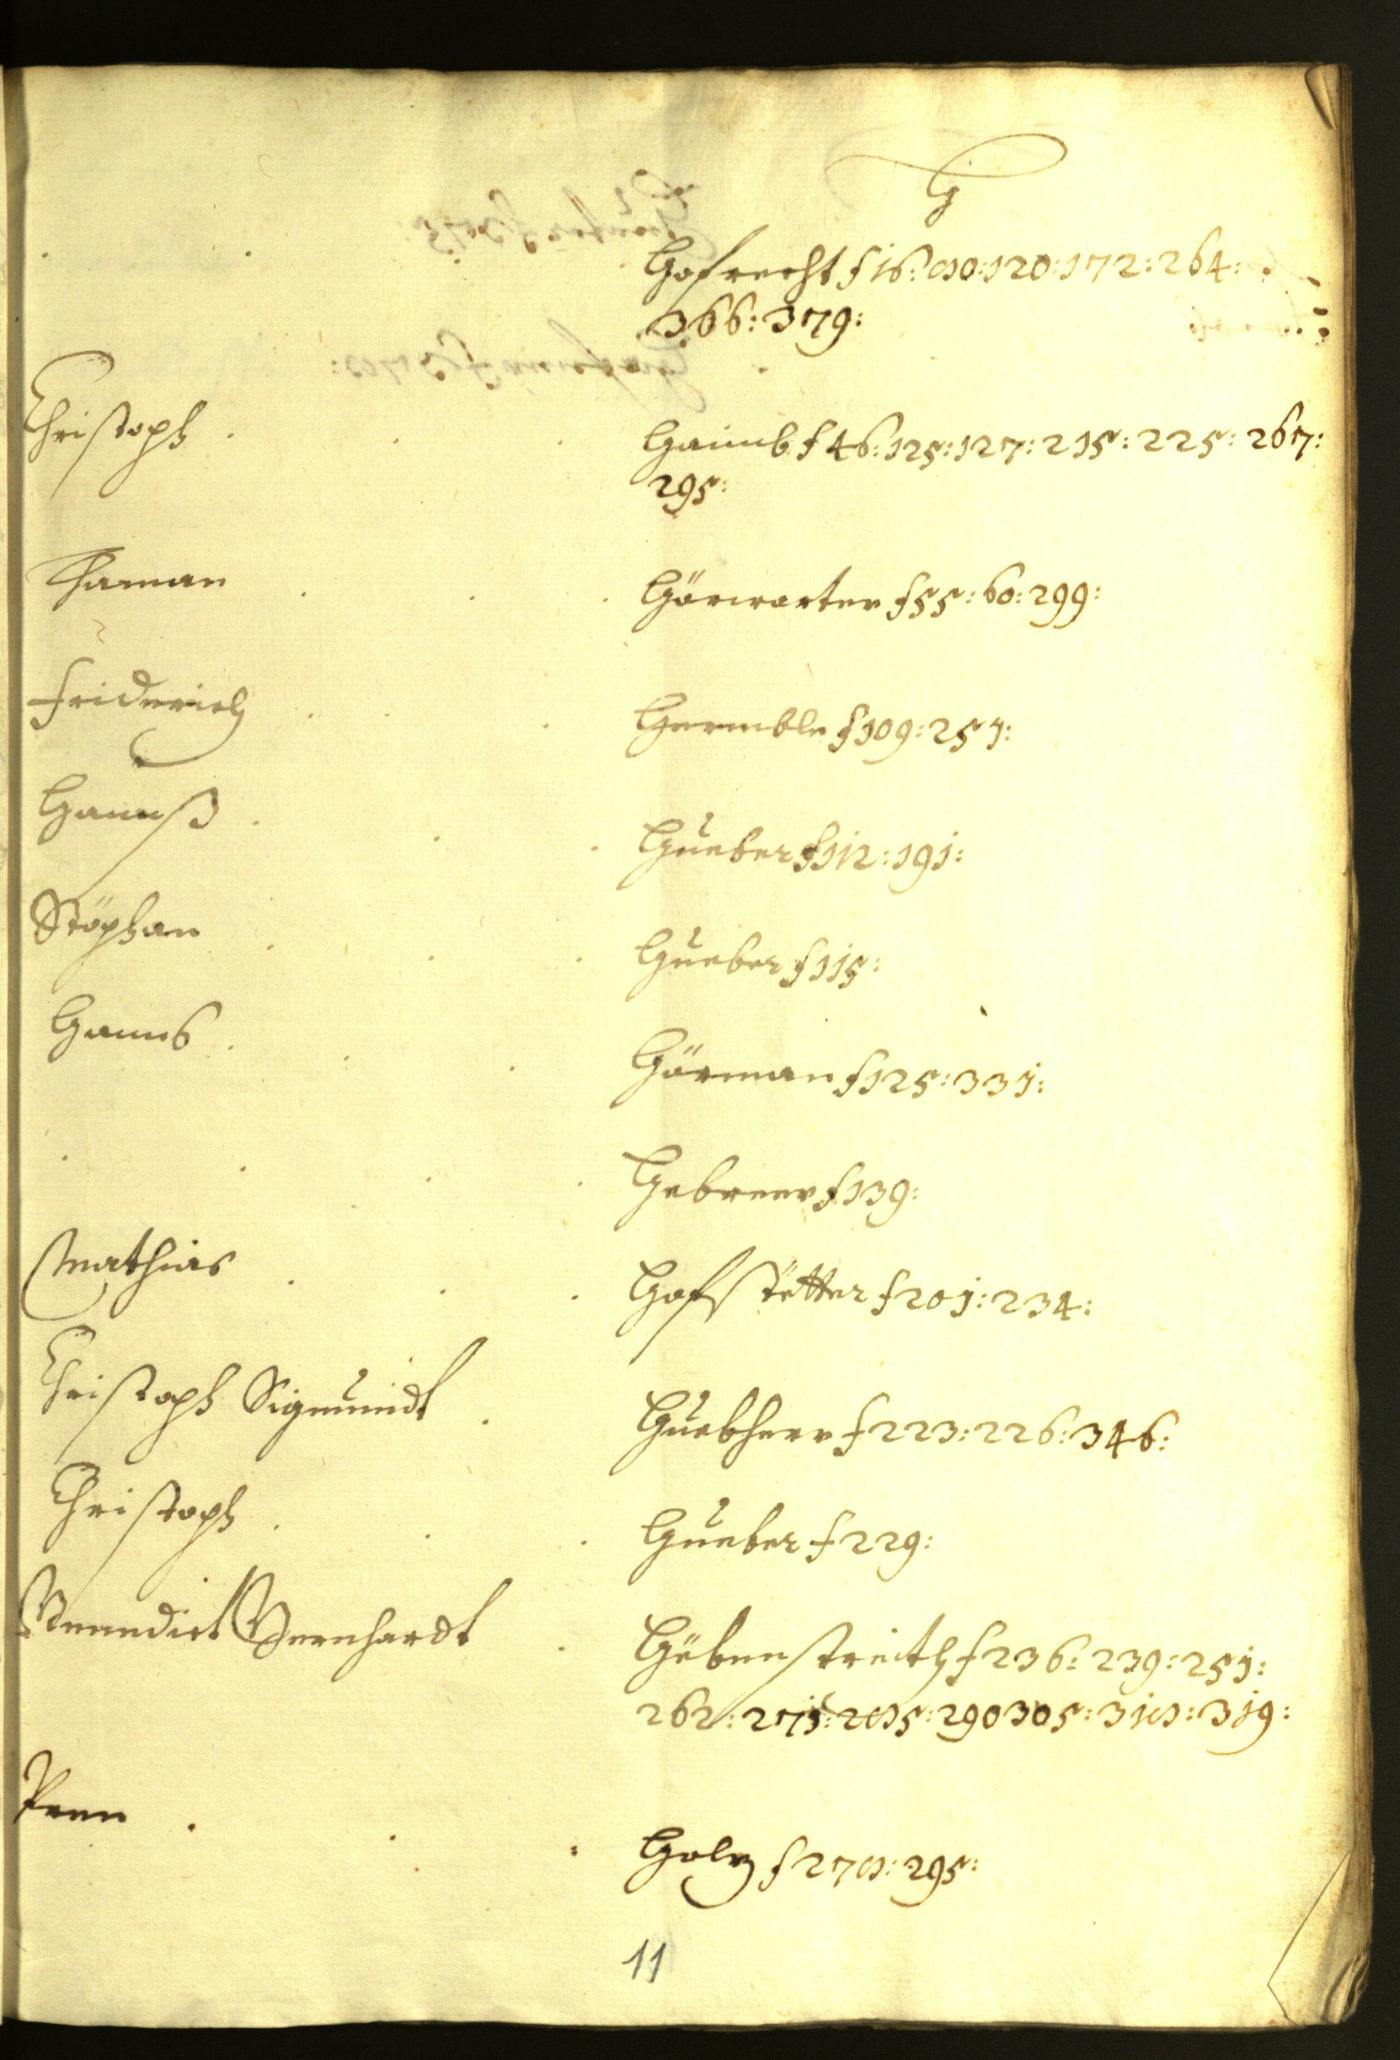 H
Hofrecht f 16: 80: 120: 172: 264:
366: 379:
Christoph . . . Haimb f 46: 125: 127: 215: 225: 267:
295:
Thaman . . . Hörwarter f 55: 60: 299:
Friderich . . Hermble f 109: 251:
Hannß . . . Hueber f 112: 191:
Stöphan . . . Hueber f 115:
Hanns . . . Hörman f 125: 331:
. . . . Hebreer f 139:
Mathias . . . Hofstetter f 201: 234:
Christoph Sigmundt . Huebherr f 223: 226: 346:
Christoph . . . Hueber f 229:
Benedict Bernhardt . Hebenstreith f 236: 239: 251:
262: 275: 285: 290 305: 318: 319:
. . . Holz f 278: 295:
11